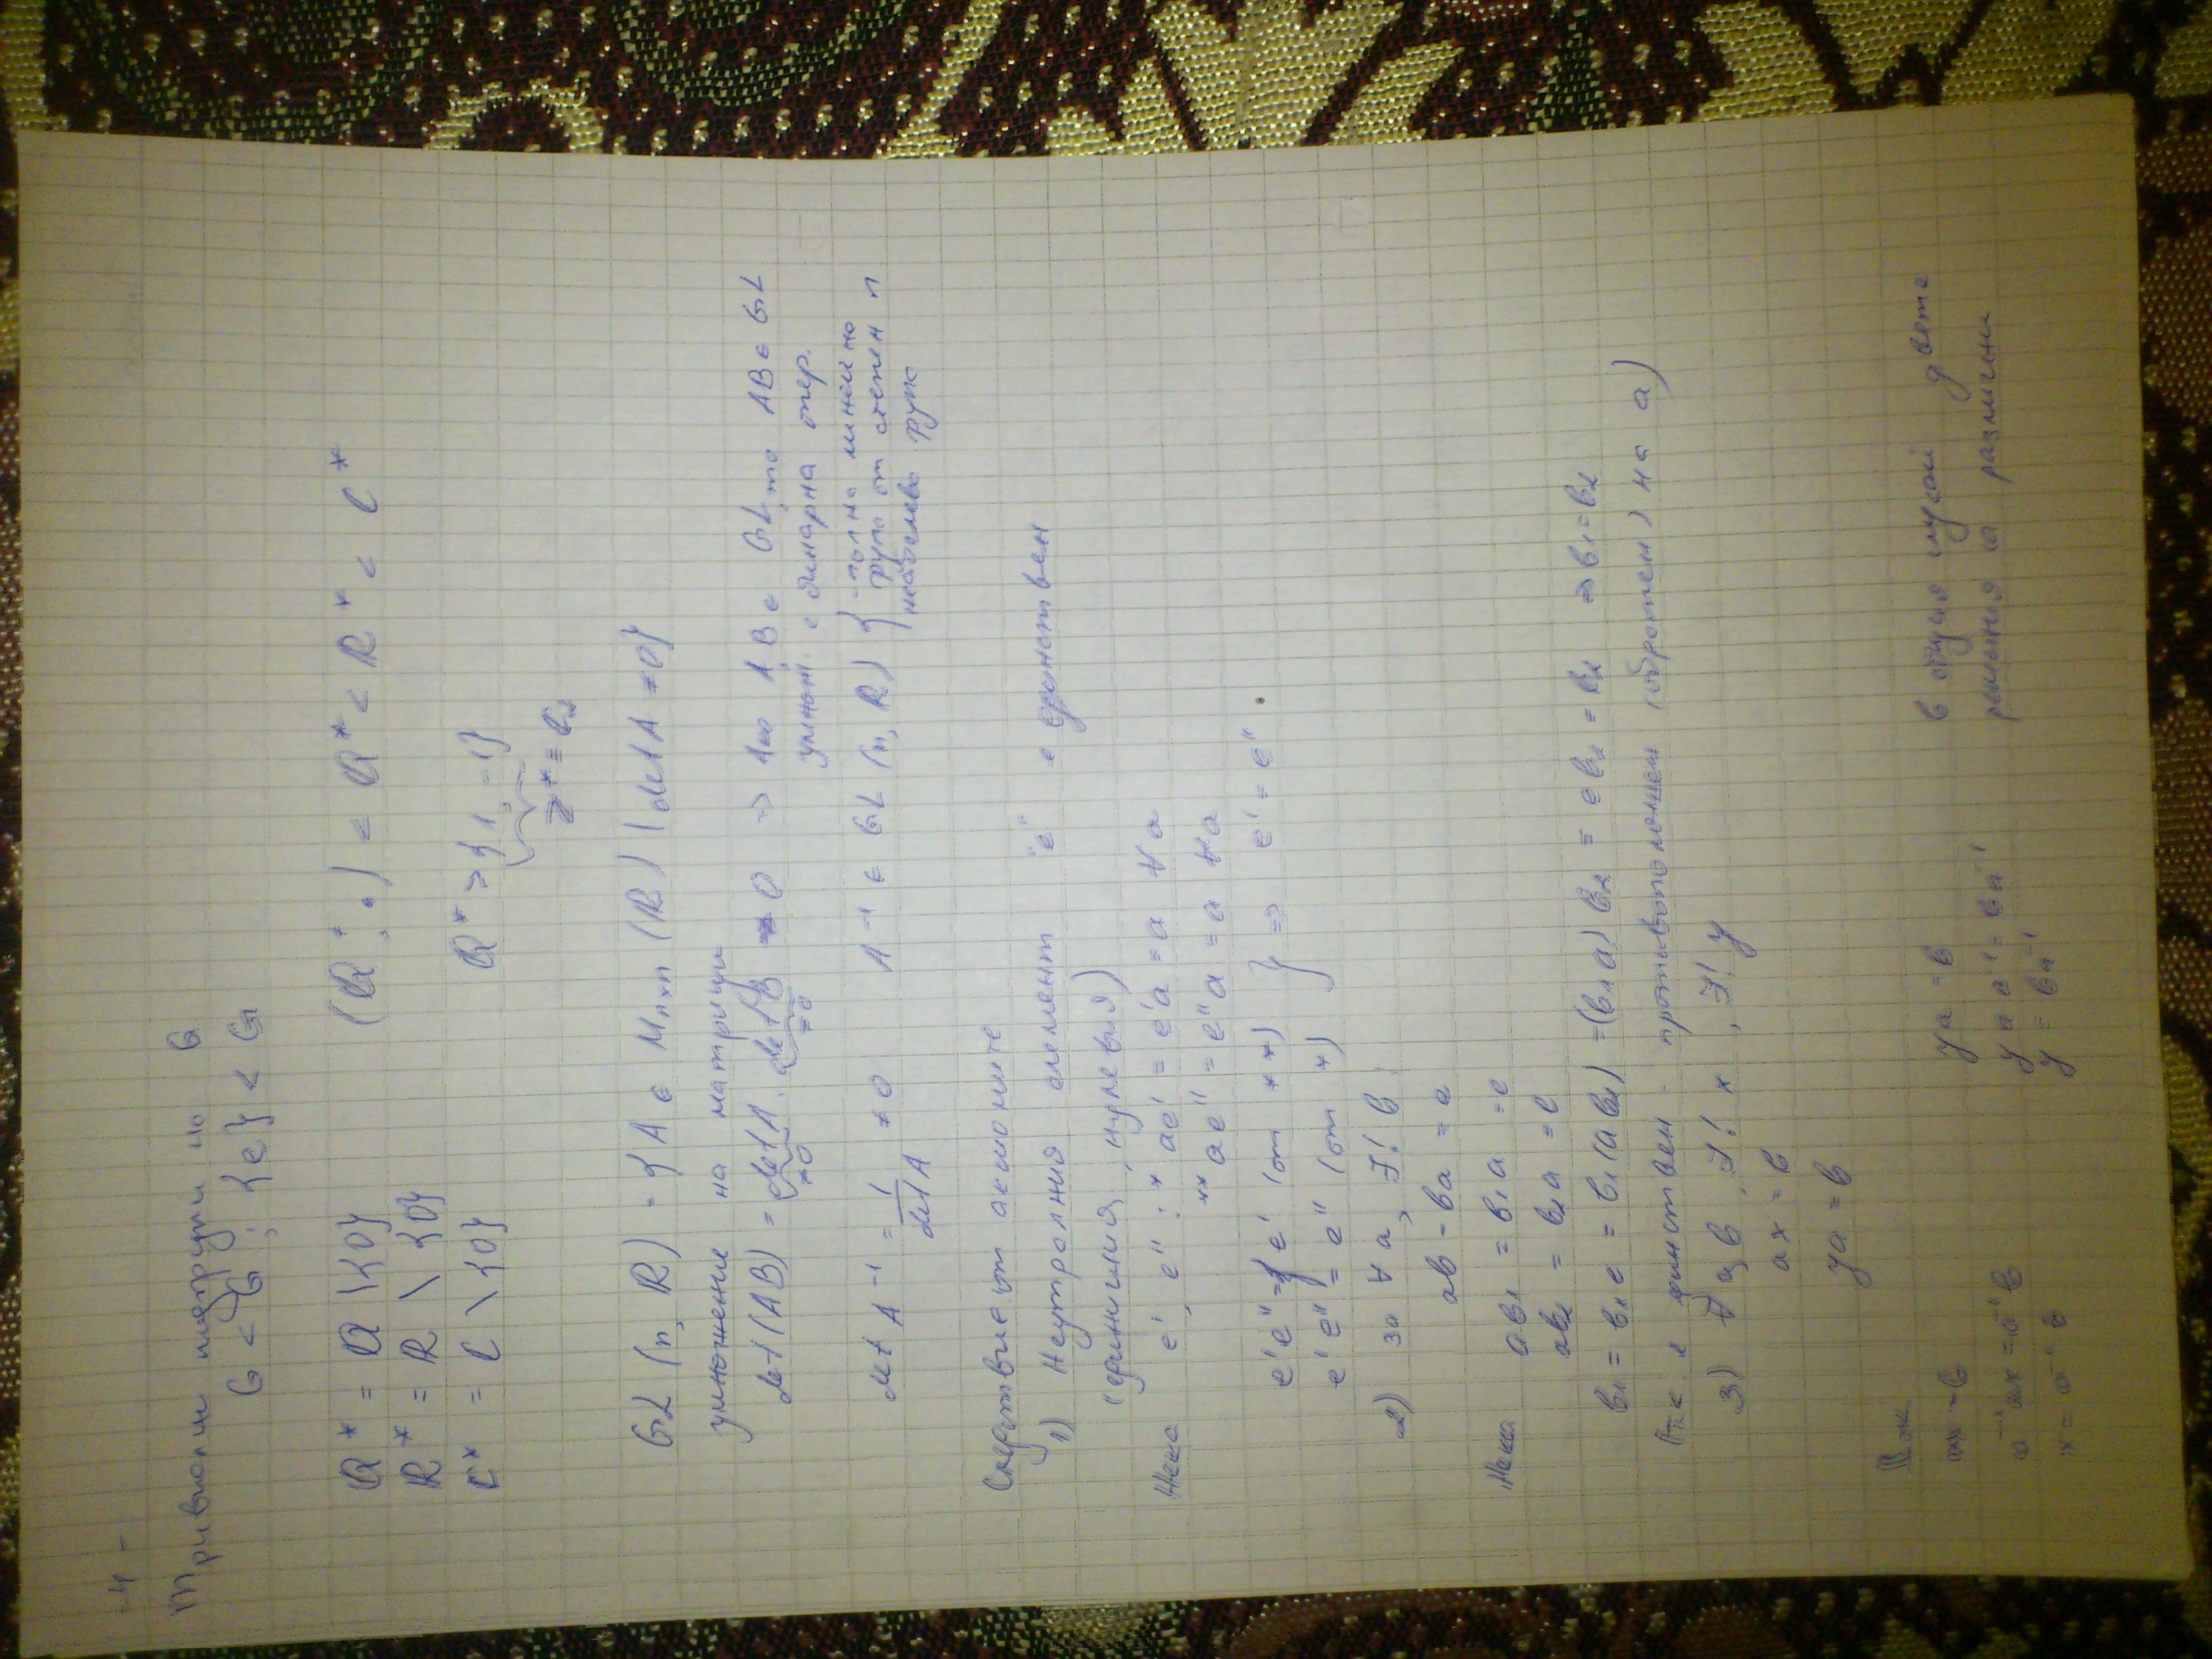 - 4 -
Тривиални подгрупи на G
G < G ; {e} < G
Q* = Q \ {0}
R* = R \ {0}
C* = C \ {0}
(Q⁺, •) < Q* < R* < C*
Q* > {1, -1}
GL (n, R) = {A ∈ Mn×n (R) | det A ≠ 0}
умножение на матрици
det (AB) = det A . det B ≠ 0 ⇒ ако A, B ∈ GL, то AB ∈ GL
≠0 ≠0
умнож. е бинарна опер.
det A⁻¹ = 1/det A ≠ 0 A⁻¹ ∈ GL (n, R) } - пълна линейна
група от степен n
неабелева група
Следствие от аксиомите
1) Неутралния елемент "e" е единствен
(единичния, нулевия)
Нека e', e'' : * ae' = e'a = a ∀a
** ae'' = e''a = a ∀a
e'e'' = e' (от **)
e'e'' = e'' (от *) } ⇒ e' = e''
2) за ∀ a, ∃! b :
ab = ba = e
Нека ab₁ = b₁a = e
ab₂ = b₂a = e
b₁ = b₁e = b₁(ab₂) = (b₁a) b₂ = e b₂ = b₂ ⇒ b₁ = b₂
единствен противоположен (обратен) на a)
3) ∀ a, b, ∃! x, ∃! y
ax = b
ya = b
Док
ax = b
a⁻¹ax = a⁻¹b
x = a⁻¹b
ya = b
y a a⁻¹ = ba⁻¹
y = ba⁻¹
в общия случай двете
решения са различни